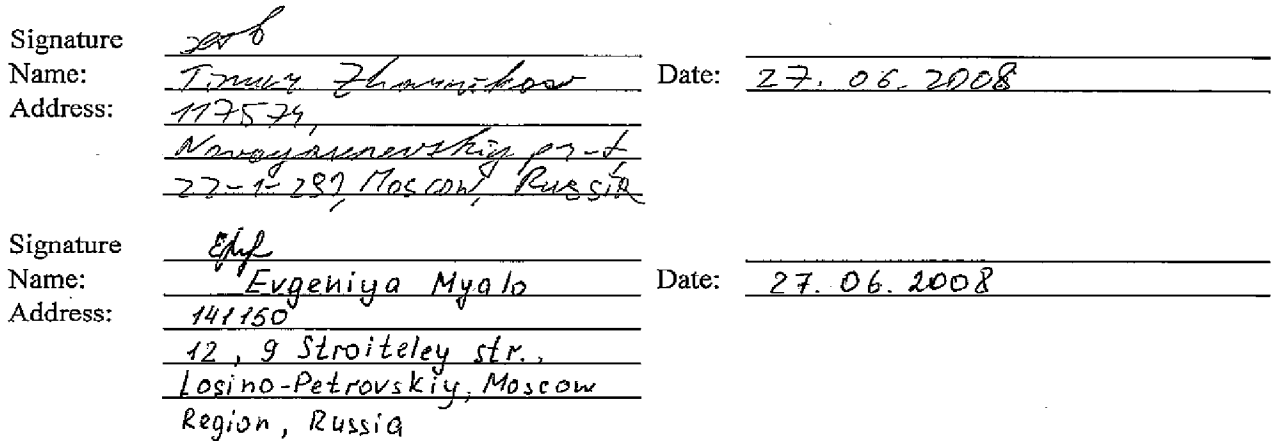 Signature
Name: Timur Zhavnikov Date: 27. 06. 2008
Address: 117574,
Novoyasenevskiy pr-t
22-1-289, Moscow, Russia
Signature
Name: Evgeniya Myalo Date: 27. 06. 2008
Address: 141150
12, 9 Stroiteley str.,
Losino-Petrovskiy, Moscow
Region, Russia